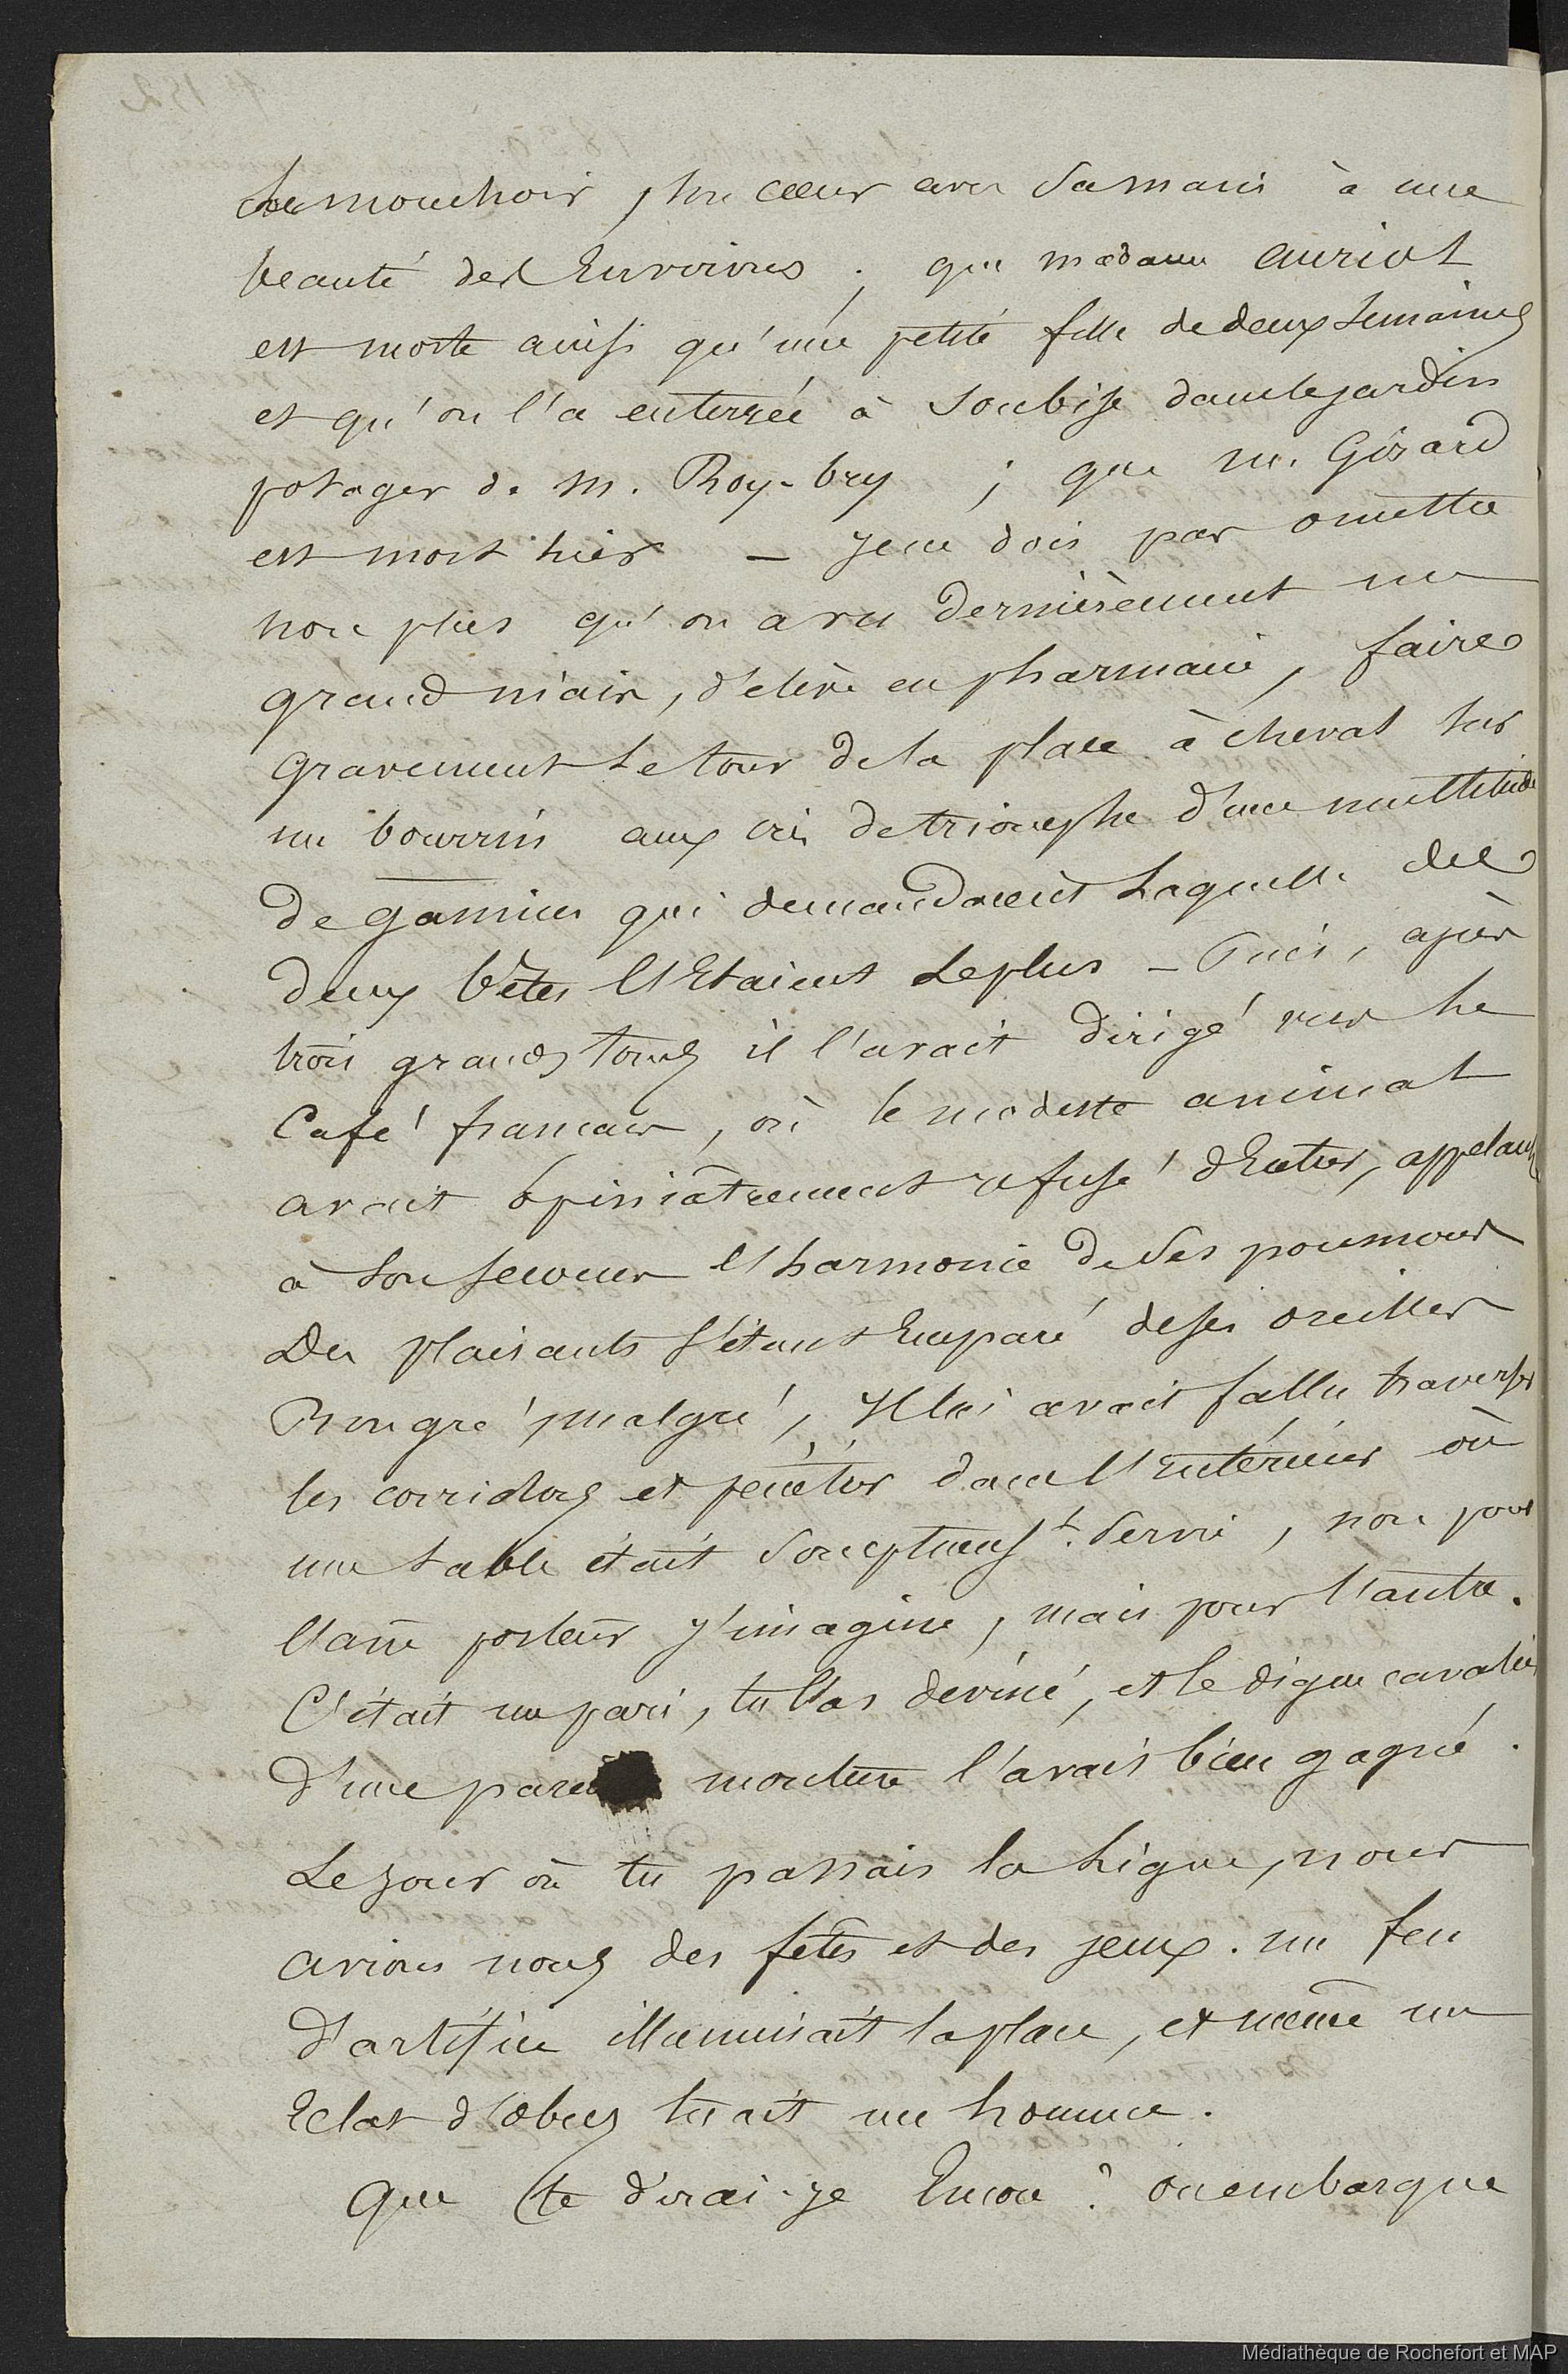 le mouchoir, son cœur avec sa main à une
beauté des Environs ; que madame auriol
est morte ainsi qu'une petite fille de deux semaines
et qu'on l'a enterrée à Soubise dans le jardin
potager de M. Roy-bry ; que m. Girard
est mort hier — Je ne dois pas omettre
non plus qu'on a vu dernièrement un
grand niais, d'élève en pharmacie, faire
gravement le tour de la place à cheval sur
un bourrin aux cris de triomphe d'une multitude
de gamins qui demandaient laquelle des
deux bêtes l'Etaient le plus — Puis, après
trois grands tours il l'avait dirigé vers le
Café français, où le modeste animal
avait opiniâtrement refusé d'Entrer, appelant
à son secours l'harmonie de ses poumons
Des plaisants s'étant Emparé de ses oreilles
Bon gré malgré, Il lui avait fallu traverser
les corridors et pénétrer dans l'intérieur où
une table était somptueus.t servie, non pour
l'âne porteur j'imagine, mais pour l'autre.
C'était un pari, tu l'as deviné, et le digne cavalier
d'une monture l'avait bien gagné.
Le jour où tu passais la ligne, nous
avions nous des fêtes et des jeux. un feu
d'artifice illuminait la place, et même un
Eclat d'obus tuait un homme.
Que te dirai-je Encore ? on embarque
Médiathèque de Rochefort et MAP